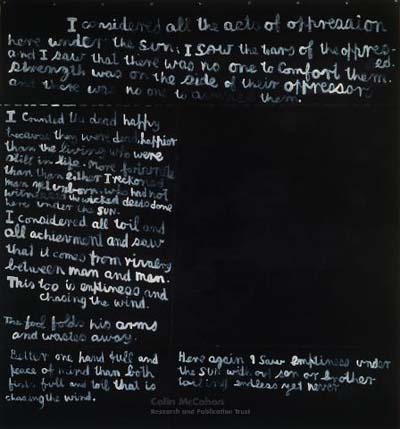 I considered all the acts of oppression
here under the sun; I saw the tears of the oppres-
ed.
and I saw that there was no one to comfort them.
strength was on the side of their oppressors
and there was no one to
them.
I counted the dead happy
because they were dead, happier
than the living who were
still in life. More fortunate
than than either I reckoned
man yet unborn, who had not
witnessed the wicked deeds done
here under the sun.
I considered all toil and
all achievment and saw
that it comes from rivalry
between man and man.
This too is emptiness and
chasing the wind.
The fool folds his arms
and wastes away.
Better one hand full and
peace of mind than both
fists full and toil that is
chasing the wind.
Here again I saw emptiness under
the sun without son or brother
toiling endless yet never
Colin McCahon
Research and Publication Trust